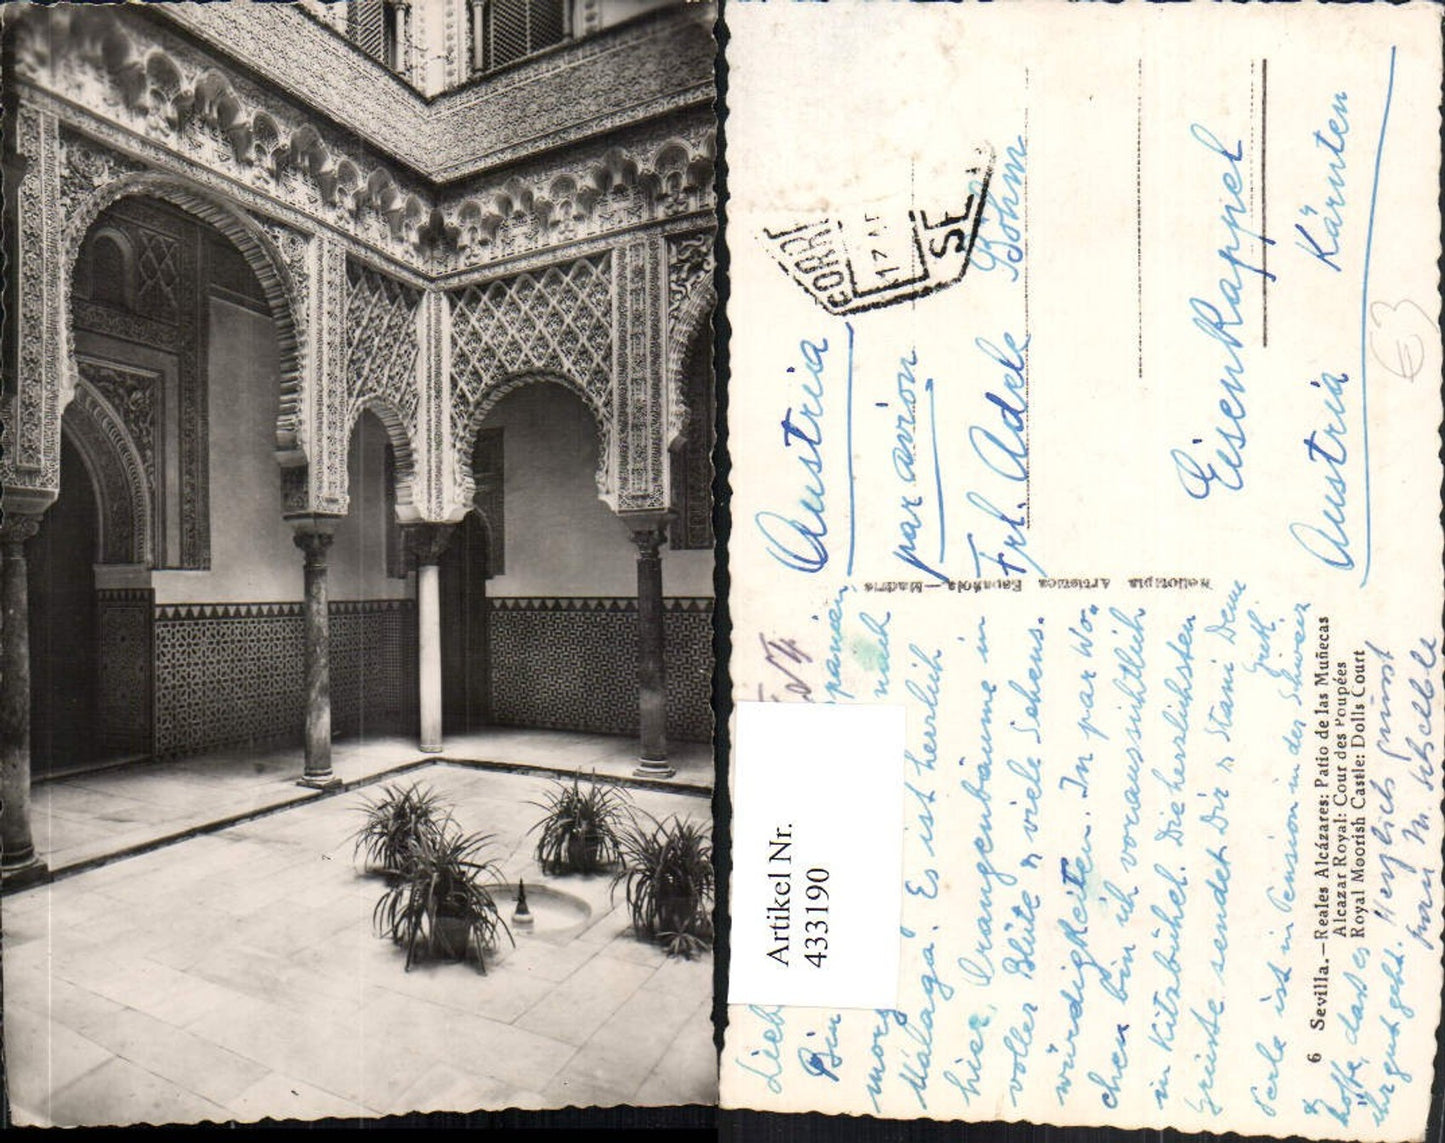 Artikel Nr.
433190
Lieb
Bin panien
morg nach
Malaga. Es ist herrlich
hier, Orangenbäume in
voller Blüte u viele Sehens.
würdigkeiten. In par Wo-
chen bin ich voraussichtlich
in Kitzbühel. Die herzlichsten
Grüsse sendet Dir u Stani Deine
Gretl.
Perle ist in Pension in der Schweiz
hoffe, dass es
ihr gut geht. Herzlich Grüsst
6 Sevilla.—Reales Alcázares: Patio de las Muñecas
Alcazar Royal: Cour des Poupées
Royal Moorish Castle: Dolls Court
Heliotipia Artistica Española—Madrid
CORRE
17 A
SE
Austria
par avion
Frl. Adele Böhm
Eisenkappel
Austria Kärnten
€3